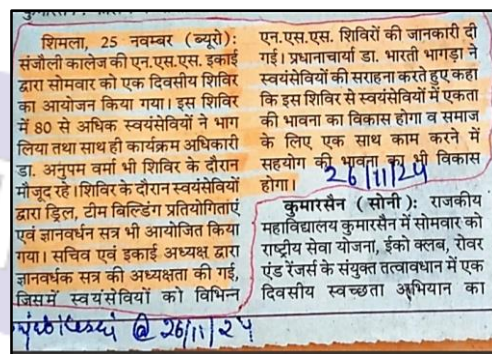 शिमला, 25 नवम्बर (ब्यूरो):
संजौली कालेज की एन.एस.एस. इकाई
द्वारा सोमवार को एक दिवसीय शिविर
का आयोजन किया गया। इस शिविर
में 80 से अधिक स्वयंसेवियों ने भाग
लिया तथा साथ ही कार्यक्रम अधिकारी
डा. अनुपम वर्मा भी शिविर के दौरान
मौजूद रहे। शिविर के दौरान स्वयंसेवियों
द्वारा ड्रिल, टीम बिल्डिंग प्रतियोगिताएं
एवं ज्ञानवर्धन सत्र भी आयोजित किया
गया। सचिव एवं इकाई अध्यक्ष द्वारा
ज्ञानवर्धक सत्र की अध्यक्षता की गई,
जिसमें स्वयंसेवियों को विभिन्न
@ 26/11/24
एन.एस.एस. शिविरों की जानकारी दी
गई। प्रधानाचार्या डा. भारती भागड़ा ने
स्वयंसेवियों की सराहना करते हुए कहा
कि इस शिविर से स्वयंसेवियों में एकता
की भावना का विकास होगा व समाज
के लिए एक साथ काम करने में
सहयोग की भावना का भी विकास
होगा।
26/11/24
कुमारसैन (सोनी): राजकीय
महाविद्यालय कुमारसैन में सोमवार को
राष्ट्रीय सेवा योजना, ईको क्लब, रोवर
एंड रेंजर्स के संयुक्त तत्वावधान में एक
दिवसीय स्वच्छता अभियान का